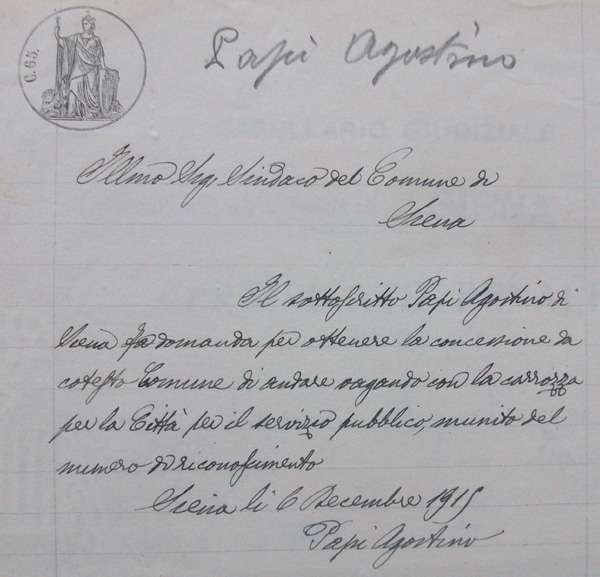 C. 65.
Papi Agostino
Illmo Sig. Sindaco del Comune di
Siena
Il sottoscritto Papi Agostino di
Siena fa domanda per ottenere la concessione da
cotesto Comune di andare vagando con la carrozza
per la Città per il servizio pubblico, munito del
numero di riconoscimento
Siena li 6 Decembre 1915
Papi Agostino